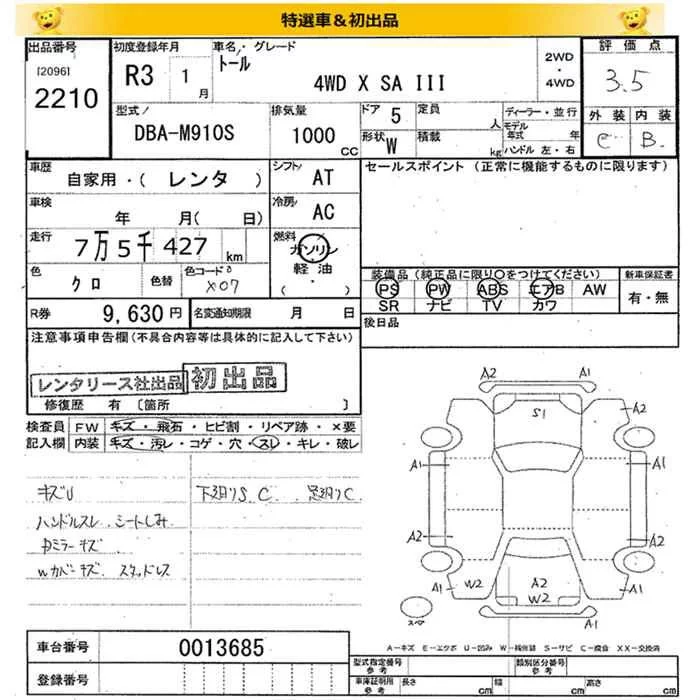 特選車&初出品
出品番号
[2096]
2210
初度登録年月
R3 1月
車名・グレード
トール
4WD X SA III
2WD・4WD
評価点
3.5
型式
DBA-M910S
排気量
1000 CC
ドア 5
形状 W
定員 人
積載 kg
ディーラー・並行
モデル年式 年
ハンドル 左・右
外装 内装
C B
車歴
自家用・( レンタ )
シフト AT
車検
年 月( 日)
冷房 AC
走行
7万5千427 km
燃料
ガソリン
軽油
( ・ )
色
クロ
色替
色コード
X07
R券 9,630円
名変通知期限 月 日
セールスポイント (正常に機能するものに限ります)
装備品 (純正品に限り○をつけてください)
新車保証書
PS PW ABS エアB AW
SR ナビ TV カワ
有・無
後日品
注意事項申告欄 (不具合内容等は具体的に記入して下さい)
レンタリース社出品 初出品
修復歴 有 〔箇所 〕
検査員記入欄
FW キズ・飛石・ヒビ割・リペア跡・×要
内装 キズ・汚レ・コゲ・穴・スレ・キレ・破レ
キズU
下廻りS.C. 足廻りC
ハンドルスレ.シートしみ.
Pミラーキズ
Wカバーキズ スタッドレス
A2 A1
A2 S1 A2
A1 A1
A2 A2
W2 A2 W2
A1
スペア
A-キズ E-エクボ U-凹み W-補修跡 S-サビ C-腐食 XX-交換済
車台番号 0013685
登録番号
型式指定番号 参考
類別区分番号 参考
車庫証明用 参考 長さ cm 幅 cm 高さ cm